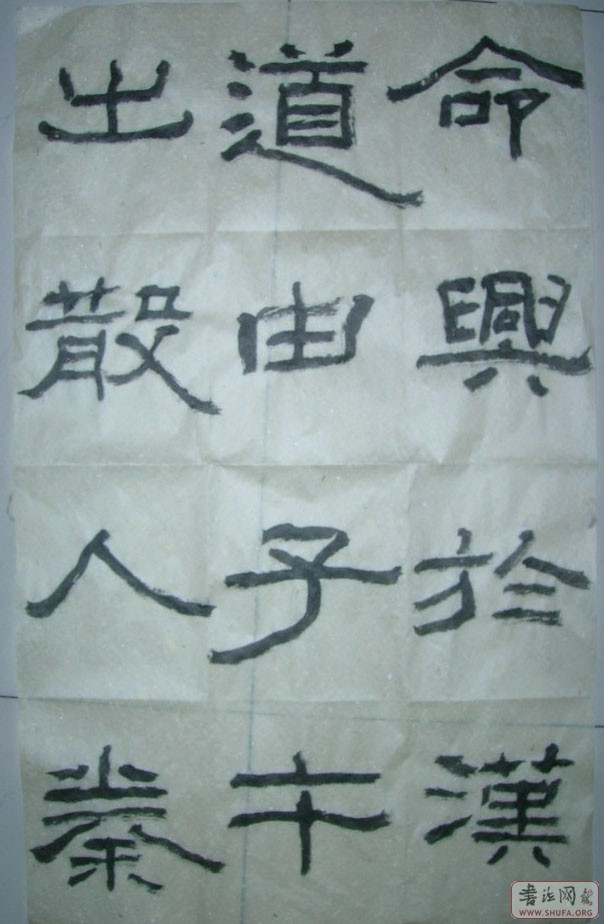 命興於漢
道由子午
出散入秦
书法网
WWW.SHUFA.ORG